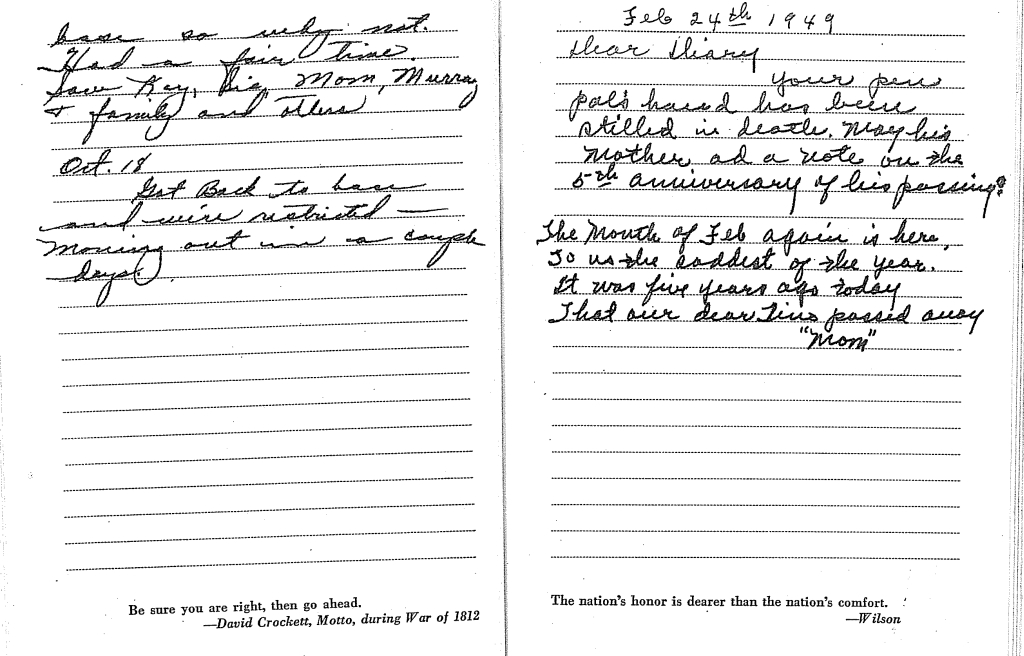 base so why not.
Had a fair time.
Saw Kay, Sis, Mom, Murray
& family and others
Oct. 18
Got Back to base
and wire restricted —
Moving out in a couple
days.
Be sure you are right, then go ahead.
—David Crockett, Motto, during War of 1812
Feb 24th 1949
Dear Diary
your pen
pal's hand has been
stilled in death. May his
Mother ad a note on the
5th anniversary of his passing?
The Month of Feb again is here,
To us the saddest of the year.
It was five years ago today
That our dear passed away
"Mom"
The nation's honor is dearer than the nation's comfort.
—Wilson